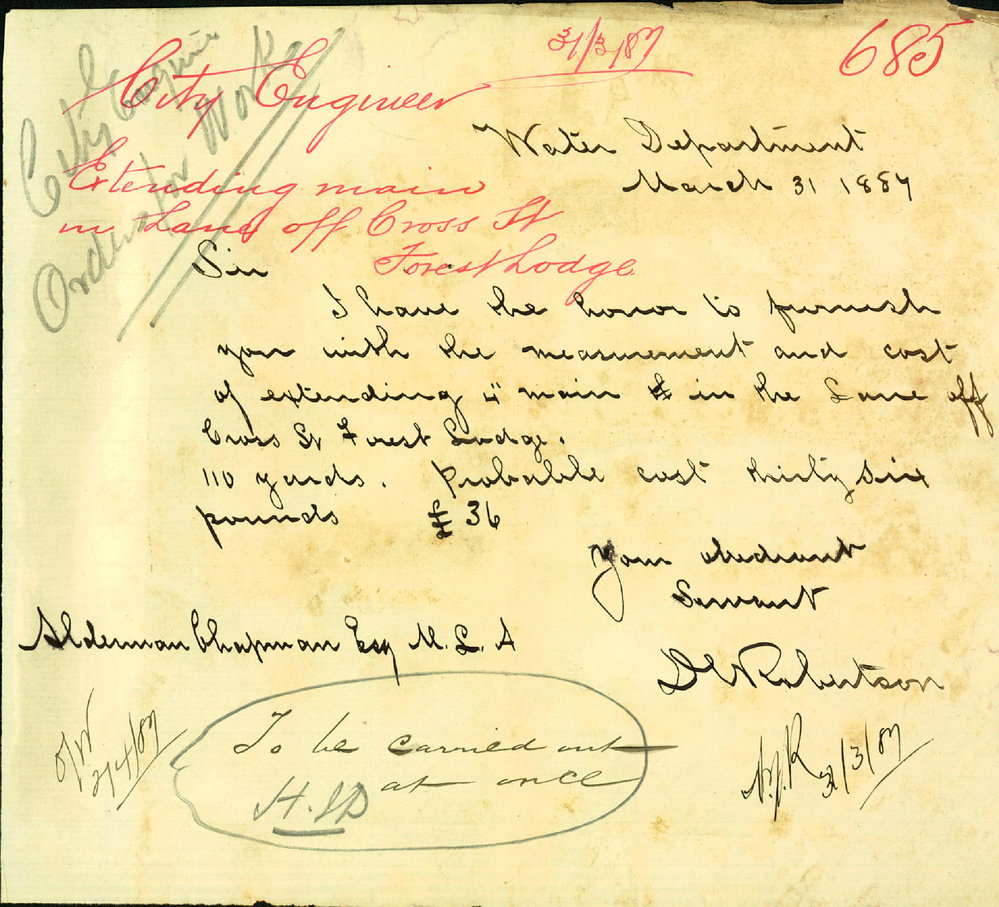 31/3/87
685
City Engineer
City Engineer
Order for Work
Water Department
March 31 1887
Extending main
in Lane off Cross St
Forest Lodge
Sir
I have the honor to furnish
you with the measurement and cost
of extending 4" main in the Lane off
Cross St Forest Lodge.
110 yards. Probable cost thirty six
pounds £36
Your obedient
Servant
Alderman Chapman Esq M.L.A
Robertson
To be carried out
at once
O/W
2/4/87
31/3/87